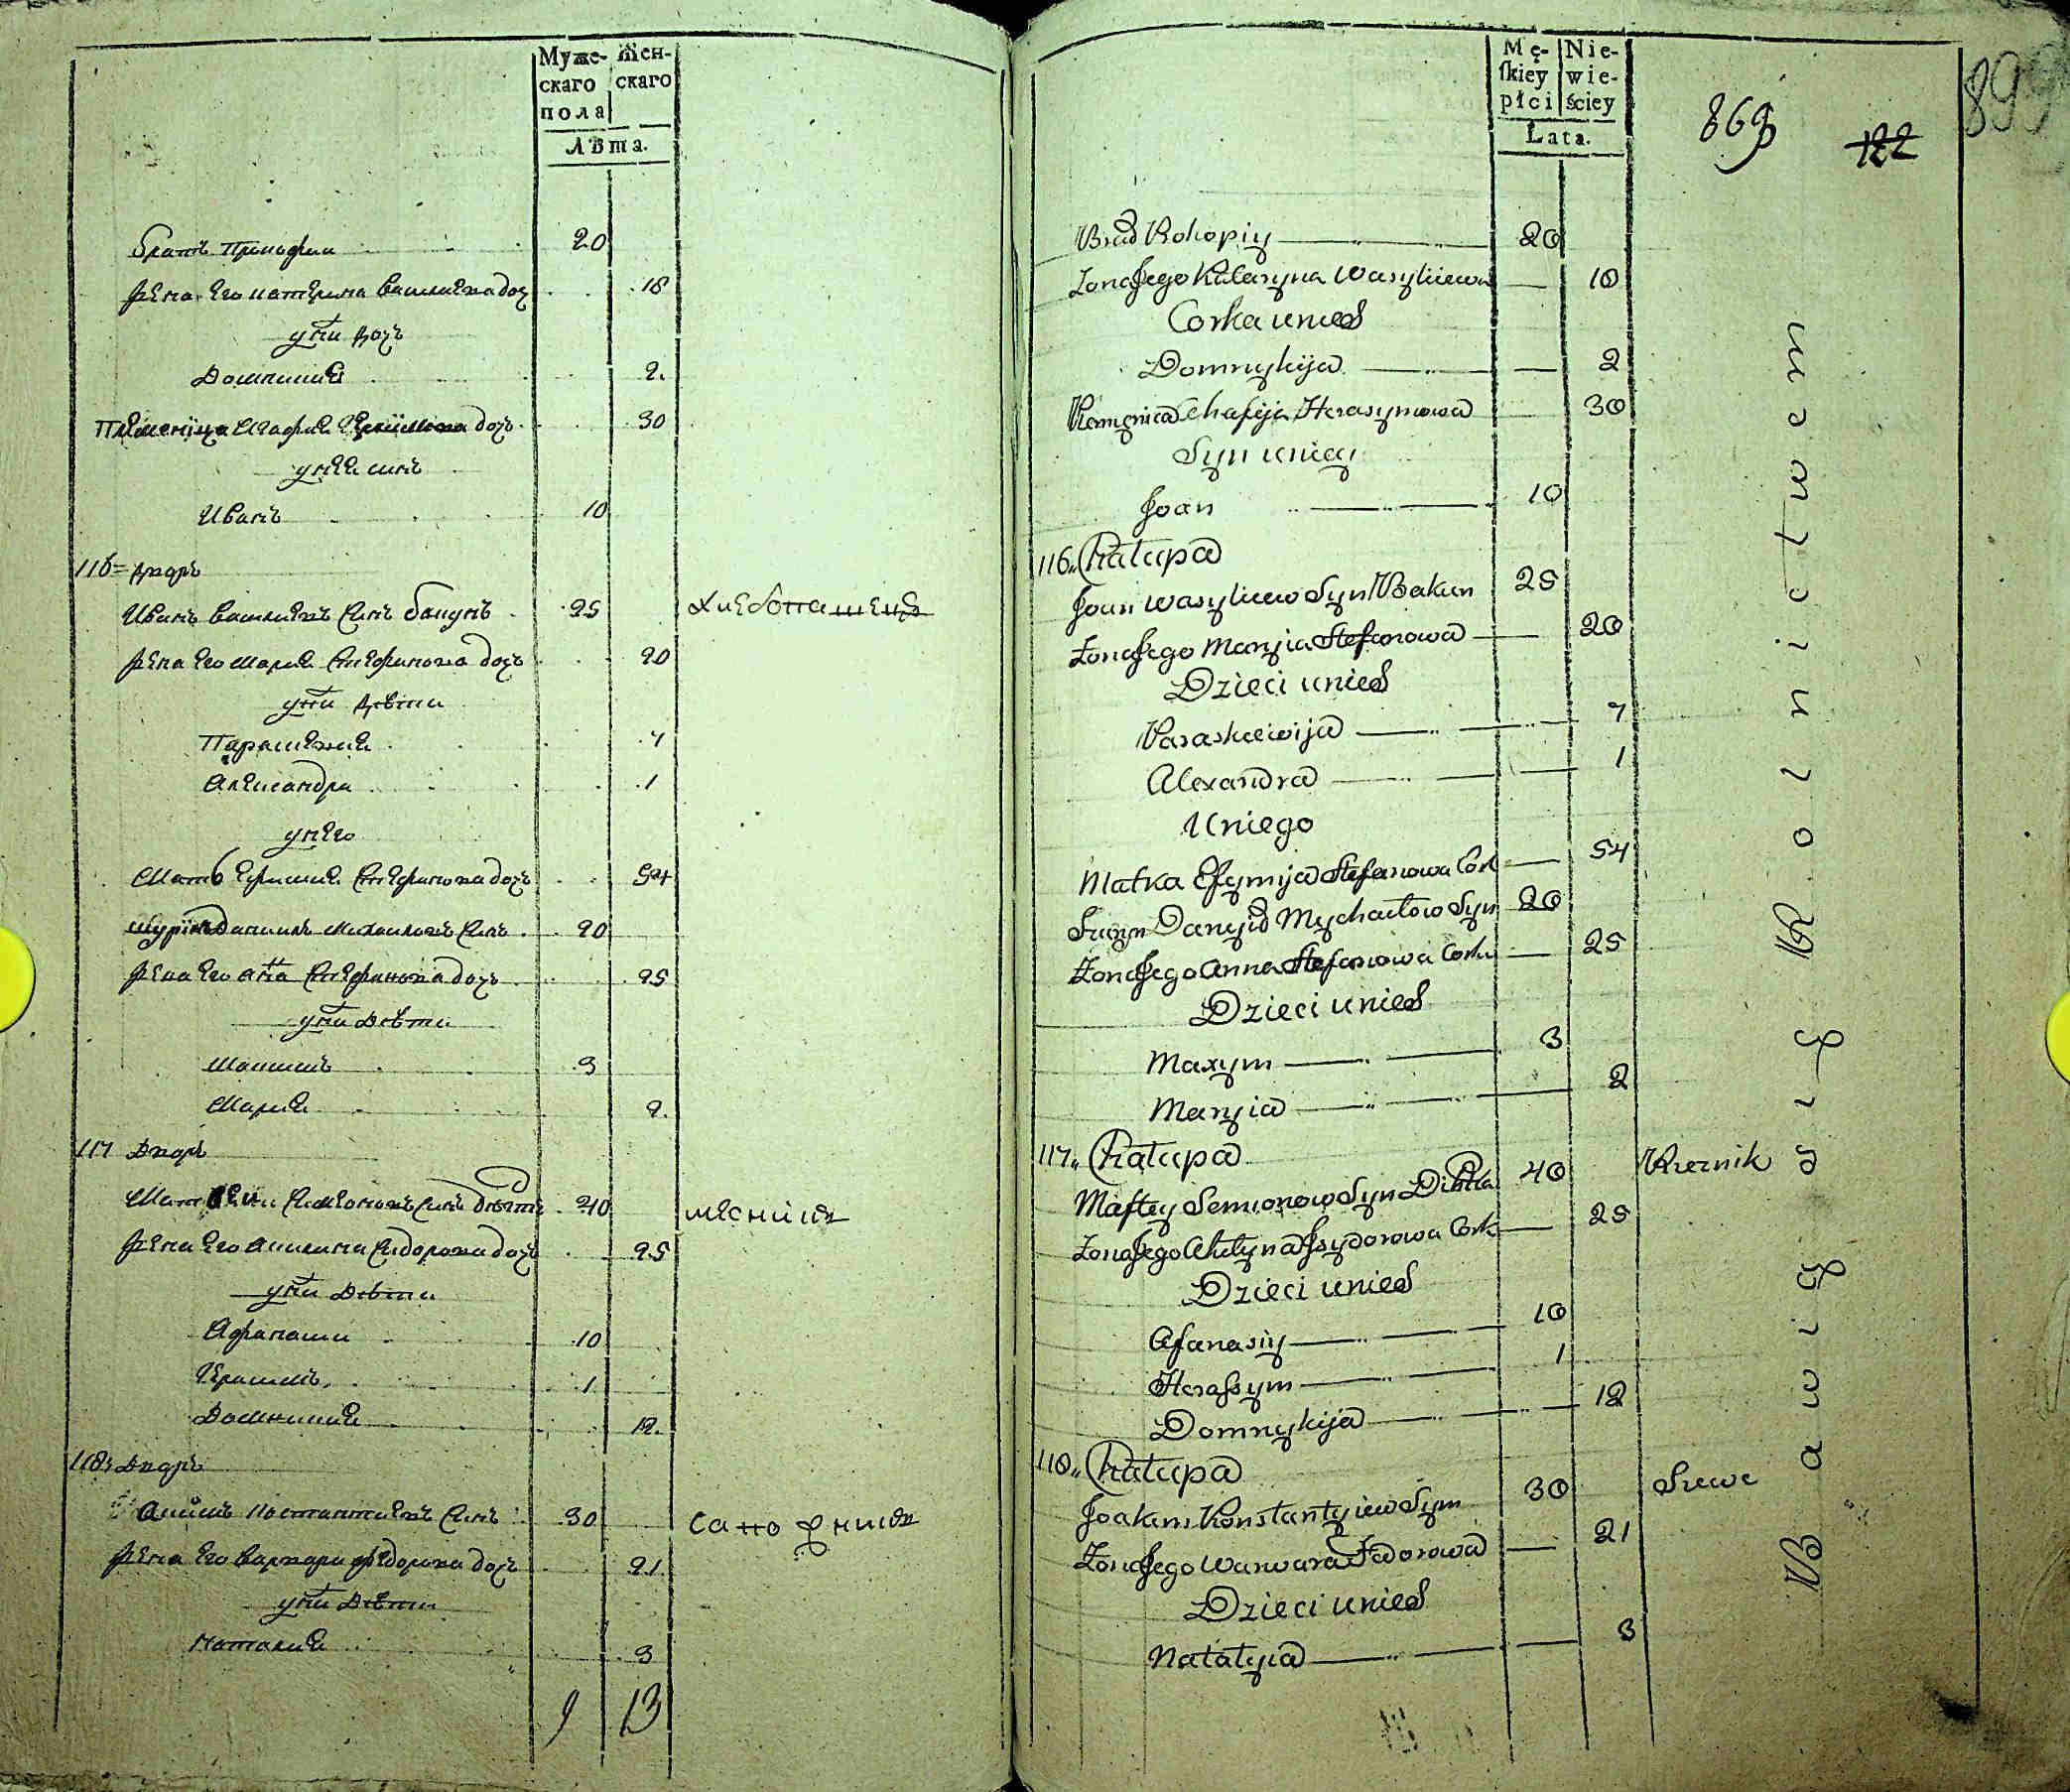 Муже- Жен-
скаго скаго
пола
Лѣта.
братъ Прокофии 20
жена его катерина василиева доч 18
у них дочъ
Домникия 2.
Племеница Агафия Герасимова дочъ 30
у нея синъ
Иванъ 10
116 = дворъ
Иванъ василиевъ синъ бакунъ 25 хлебопашецъ
жена его мария стефанова дочъ 20
у них дѣти
Параскевия 7
Александра 1
у него
Мать ефимия стефанова дочъ 54
шуринъ Данило михаиловъ синъ 20
жена его анна стефанова дочъ 25
у них Дѣти
Максимъ 3
Мария 2.
117 Дворъ
Матвеи Симеоновъ синъ 40
жена его Акилина Сидорова дочъ 25
у них Дѣти
Афанасии 10
Герасимъ 1
Домникия 12.
118 Дворъ
Акимъ Костантиевъ синъ 30 сапожникъ
жена его варвара федорова дочъ 21.
у них Дѣти
Наталия 3
9 13
Mę- Nie-
ſkiey wie-
płci ściey
Lata.
869 122 899
Brad Prokopiy 20
Zona Jego Kataryna Wasyliiewa 18
Corka unich
Domnykija 2
Ahafija Herasymowa 30
Syn uniey
Joan 10
116. Chałupa
Joan Wasyliiew Syn Bakun 25
Zona Jego Maryia Stefanowa 20
Dzieci unich
Paraskiewija 7
Alexandra 1
Uniego
Matka Efymija Stefanowa Cork 54
Danyło Mychaiłow Syn 20
Zona Jego Anna Stefanowa Corka 25
Dzieci unich
Maxym 3
Maryia 2
117. Chałupa
Maftey Semionow Syn 40
Zona Jego Akilyna Jsydorowa Cork 25
Dzieci unich
Afanasiy 10
Heraſsym 1
Domnykija 12
118. Chałupa
Joakim Konstantyiew Syn 30 Szewc
Zona Jego Warwara Fedorowa 21
Dzieci unich
Natalyia 3
Bawią się Rolnictwem